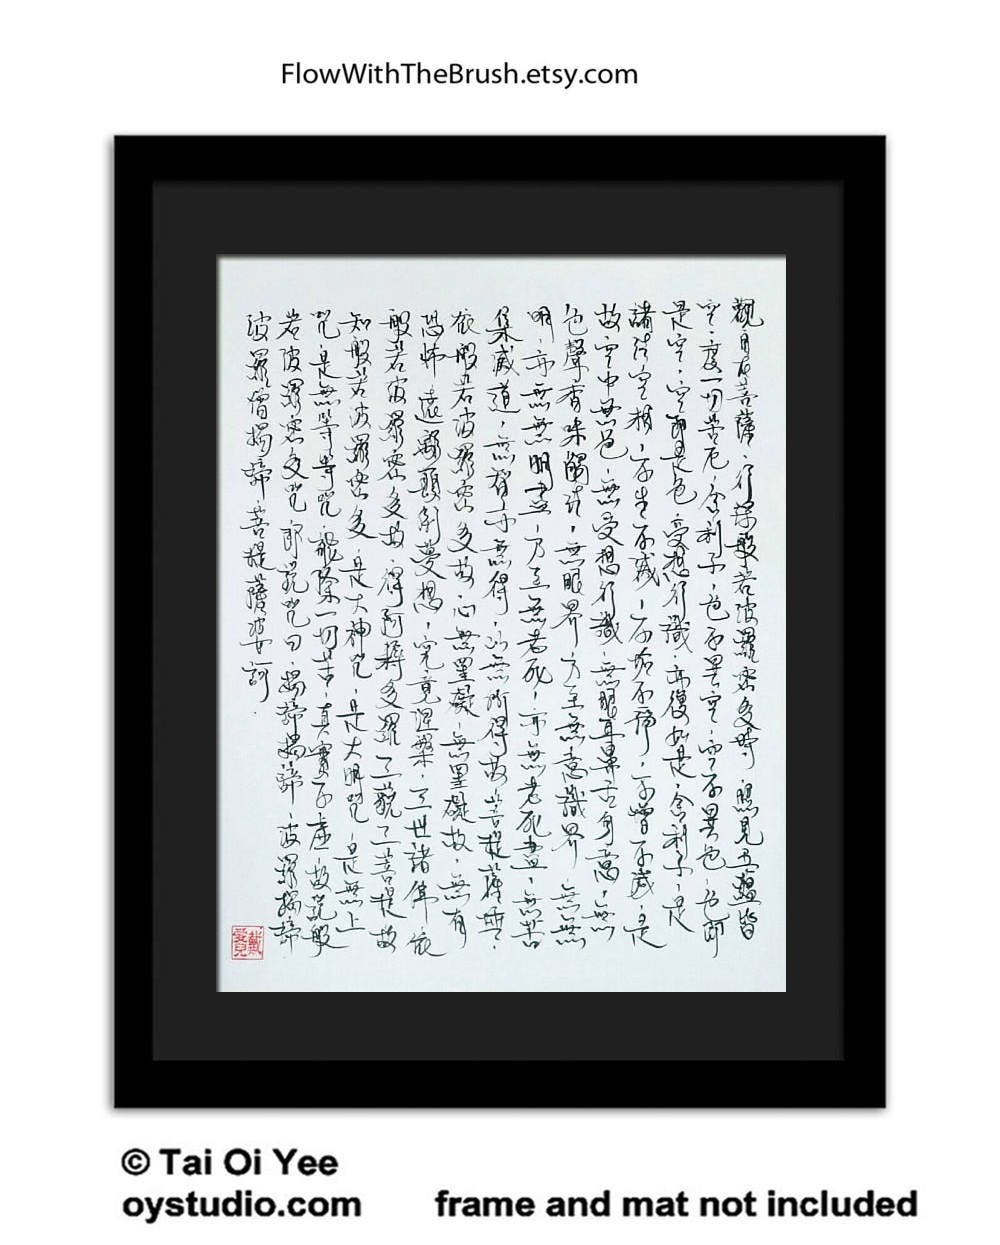 FlowWithTheBrush.etsy.com
觀自在菩薩，行深般若波羅密多時，照見五蘊皆
空，度一切苦厄，舍利子，色不異空，空不異色，色即
是空，空即是色，受想行識，亦復如是，舍利子，是
諸法空相，不生不滅，不垢不淨，不增不減，是
故空中無色，無受想行識，無眼耳鼻舌身意，無
色聲香味觸法，無眼界，乃至無意識界，無無
明，亦無無明盡，乃至無老死，亦無老死盡，無苦
集滅道，無智亦無得，以無所得故，菩提薩埵，
依般若波羅密多故，心無罣礙，無罣礙故，無有
恐怖，遠離顛倒夢想，究竟涅槃，三世諸佛，依
般若波羅密多故，得阿耨多羅三藐三菩提，故
知般若波羅密多，是大神咒，是大明咒，是無上
咒，是無等等咒，能除一切苦，真實不虛，故說般
若波羅密多咒，即說咒曰，揭諦揭諦，波羅揭諦
波羅僧揭諦，菩提薩婆訶．
戴愛兒
© Tai Oi Yee
oystudio.com frame and mat not included